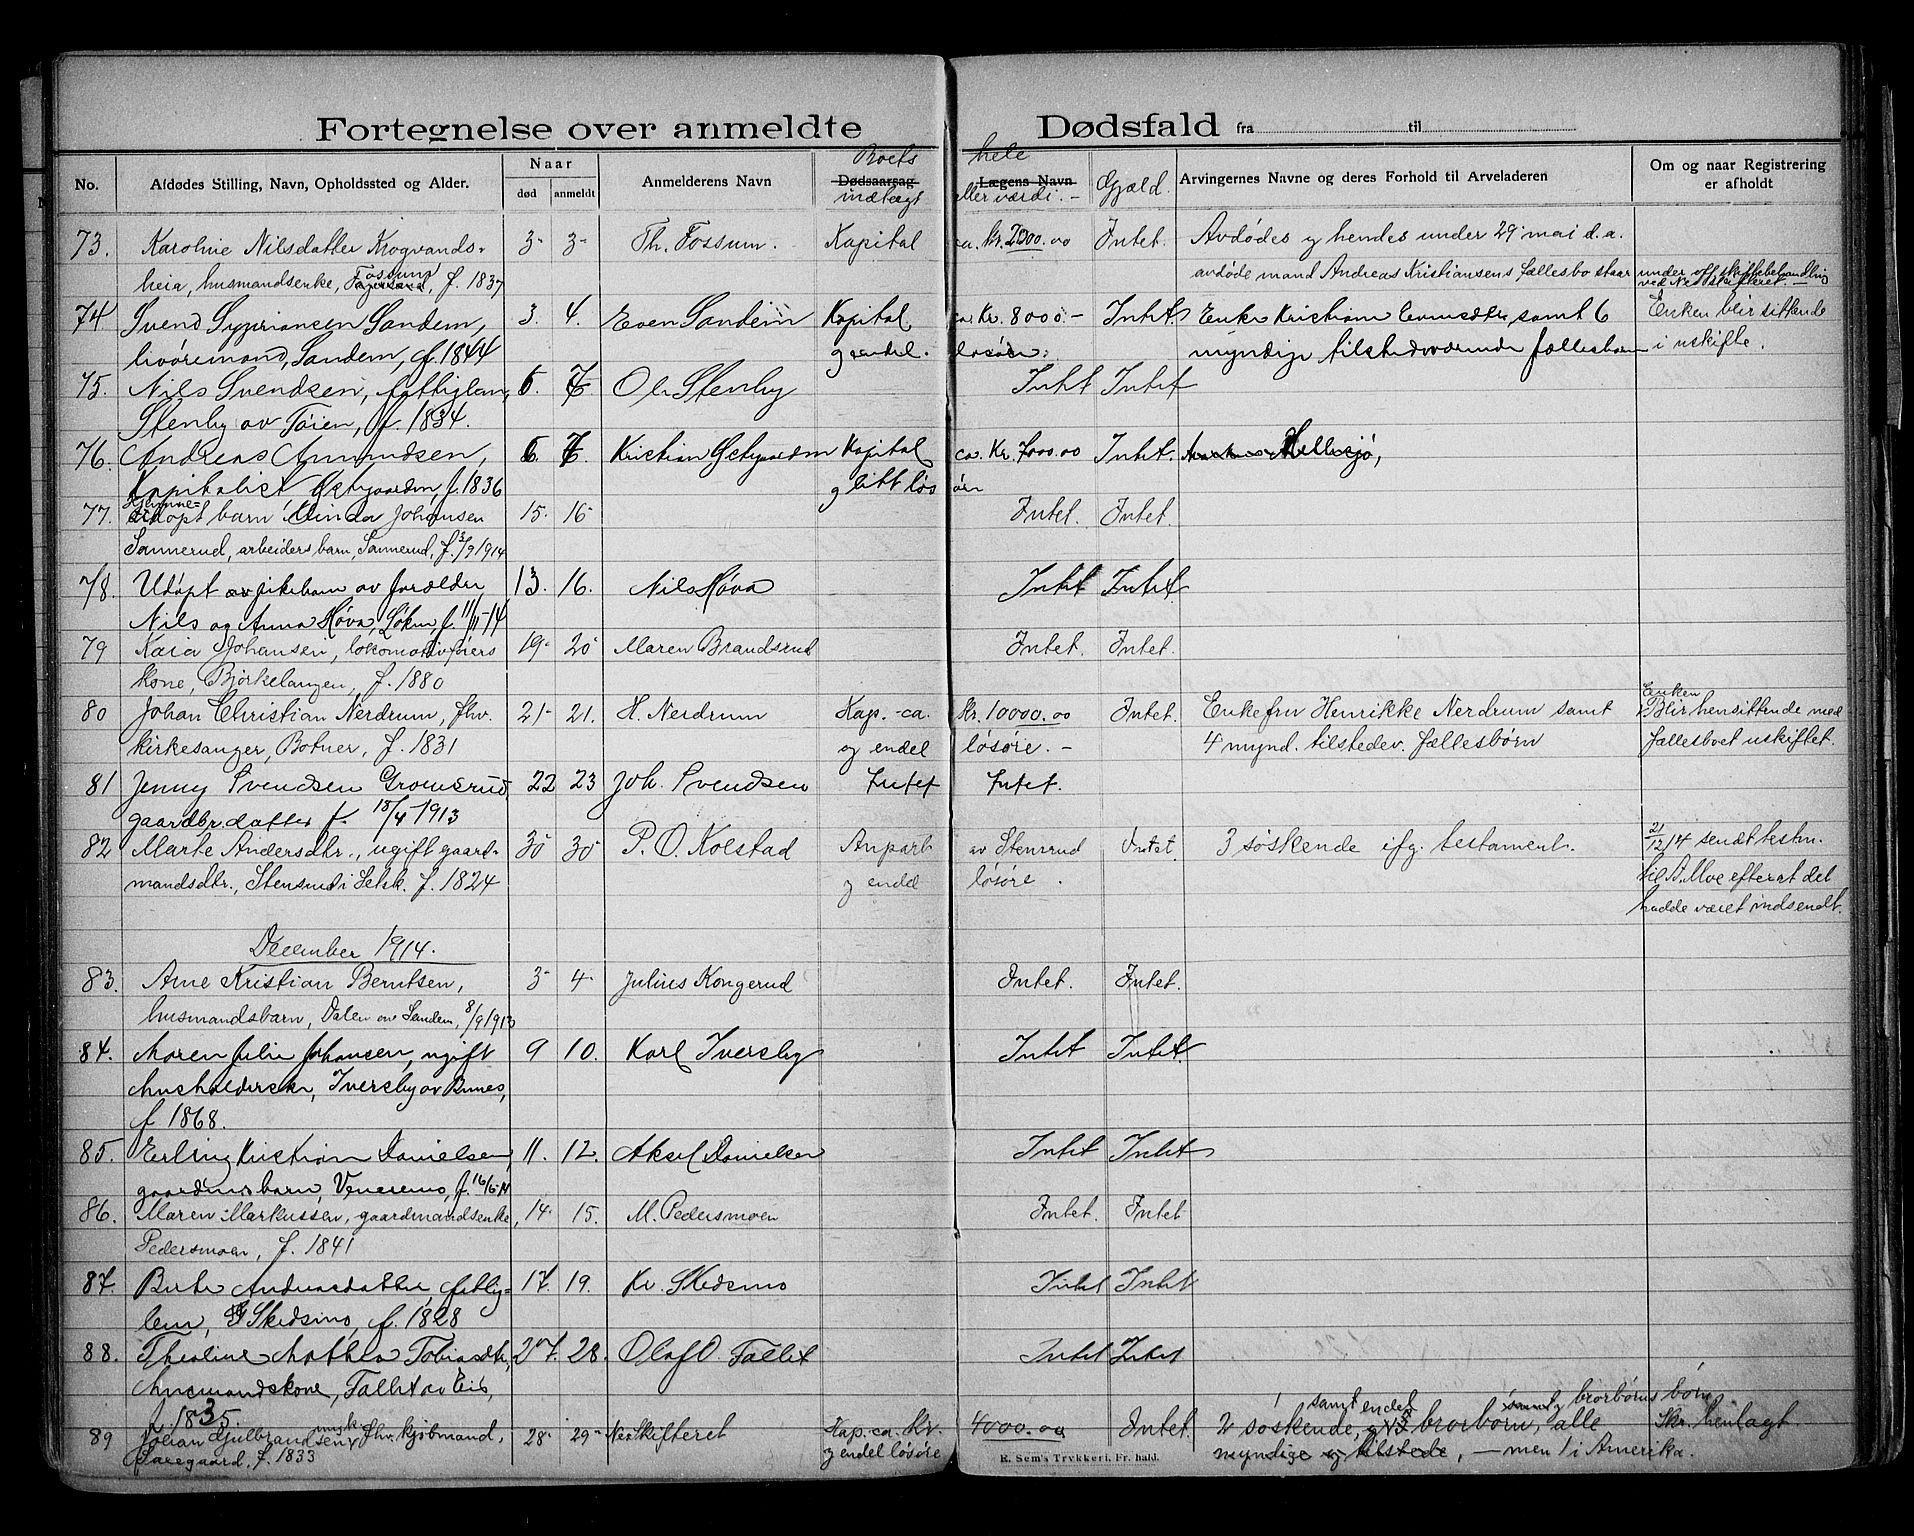 Fortegnelse over anmeldte Dødsfald fra til
No. Afdødes Stilling, Navn, Opholdssted og Alder. Naar død anmeldt Anmelderens Navn Dødsaarsag Boets indtægt Lægens Navn hele eller værdi. - Gjæld. Arvingernes Navne og deres Forhold til Arveladeren Om og naar Registrering er afholdt
73. Karoline Nilsdatter Krogvands- 3 3 Th. Fossum. Kapital ca. kr. 2000.00 Intet. Avdødes og hendes under 29 mai d.a.
heia, husmandsenke, Fossum, f. 1837 avdøde mand Andreas Kristiansens fællesbo staar under off. skiftebehandling
ved Neskifteret. -
74 Svend Sypriansen Sandem, 3. 4. Even Sandem Kapital ca Kr. 8000.- Intet. Enke Kristiane samt 6 Enken blir sittende
Sandem, f. 1844 og endel løsøre. myndige tilstedeværende fællesbørn i uskifte.
75. Nils Svendsen, fattiglem, 5. 7 Ole Stenby Intet Intet
Stenby av Tøien, f. 1834.
76. Andreas Amundsen, 6. 7. Kristian Kapital ca. Kr. 7000.00 Intet. Hellesjø,
Kapitalist f. 1836 og litt løsøre
77. Hjemmedøpt barn Minda Johansen 15 16 Intet. Intet.
Sannerud, arbeiders barn, Sannerud, f. 3/9 1914
78. Udøpt pikebarn av forælder 13. 16. Nils Høva Intet Intet.
Nils og Anna Høva, Løken, f. 11/11-14
79 Kaia Johansen, lokomotivføiers 19 20 Maren Brandsrud Intet. Intet.
kone, Bjørkelangen, f. 1880
80 Johan Christian Nerdrum, fhv. 21 21. H. Nerdrum Kap. - ca. kr. 10000.00 Intet. Enkefru Henrikke Nerdrum samt Enken Blir hensittende med
kirkesanger, Botner, f. 1831 og endel løsøre. - 4 mynd. tilstedev. fællesbørn fællesboet uskiftet.
81 Jenny Svendsen Gromsrud, 22 23 Joh. Svendsen Intet Intet.
gaardbr. datter f. 15/4 1913
82 Marte Andersdtr., ugift gaard- 30 30 P. O. Kolstad Anpart av Stensrud Intet. 3 søskende ifg. testament. 21/12 14 sendt testm.
mandsdtr., Stensrud i Setsk. f. 1824 og endel løsøre. til A. Moe efterat det
hadde været indsendt.
December 1914.
83. Arne Kristian Berntsen, 3 4 Julius Kongerud Intet. Intet.
husmandsbarn, Dalen av Sandem, 8/9 1913
84. Maren Julie Johansen, ugift 9 10. Karl Iversby Intet Intet.
husholderske, Iversby av Bunes,
f 1868.
85. Erling Kristian Danielsen, 11. 12. Aksel Danielsen Intet Intet
gaardmsbarn, Veneremo, f. 16/6 14
86. Maren Markussen, gaardmandsenke, 14 15. M. Pedersmoen Intet. Intet
Pedersmoen, f. 1841
87. Berte Andreasdatter, fattig- 17. 19. Kr. Skedsmo Intet Intet
lem, Skedsmo, f. 1828
88. Theoline Mathea Tobiasdtr, 27. 28. Olaf O. Fallet Intet Intet
husmandskone, Fallet av Eid,
f. 1835.
89 Johan Gulbrandsen, ungk. fhv. kjøbmand, 28 29 Neskifteret Kap. ca. kr. 4000.00 Intet. 2 søskende, samt endel brorbørn, brorbørns børn alle Skr. henlagt
f. 1833 og endel løsøre myndige og tilstede, - men 1 i Amerika.
E. Sem's Trykkeri, Fr. hald.